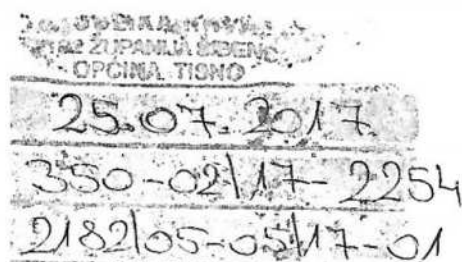 ŽUPANIJA
OPĆINA TISNO
25.07.2017.
350-02\17-2254
2182\05-05\17-01